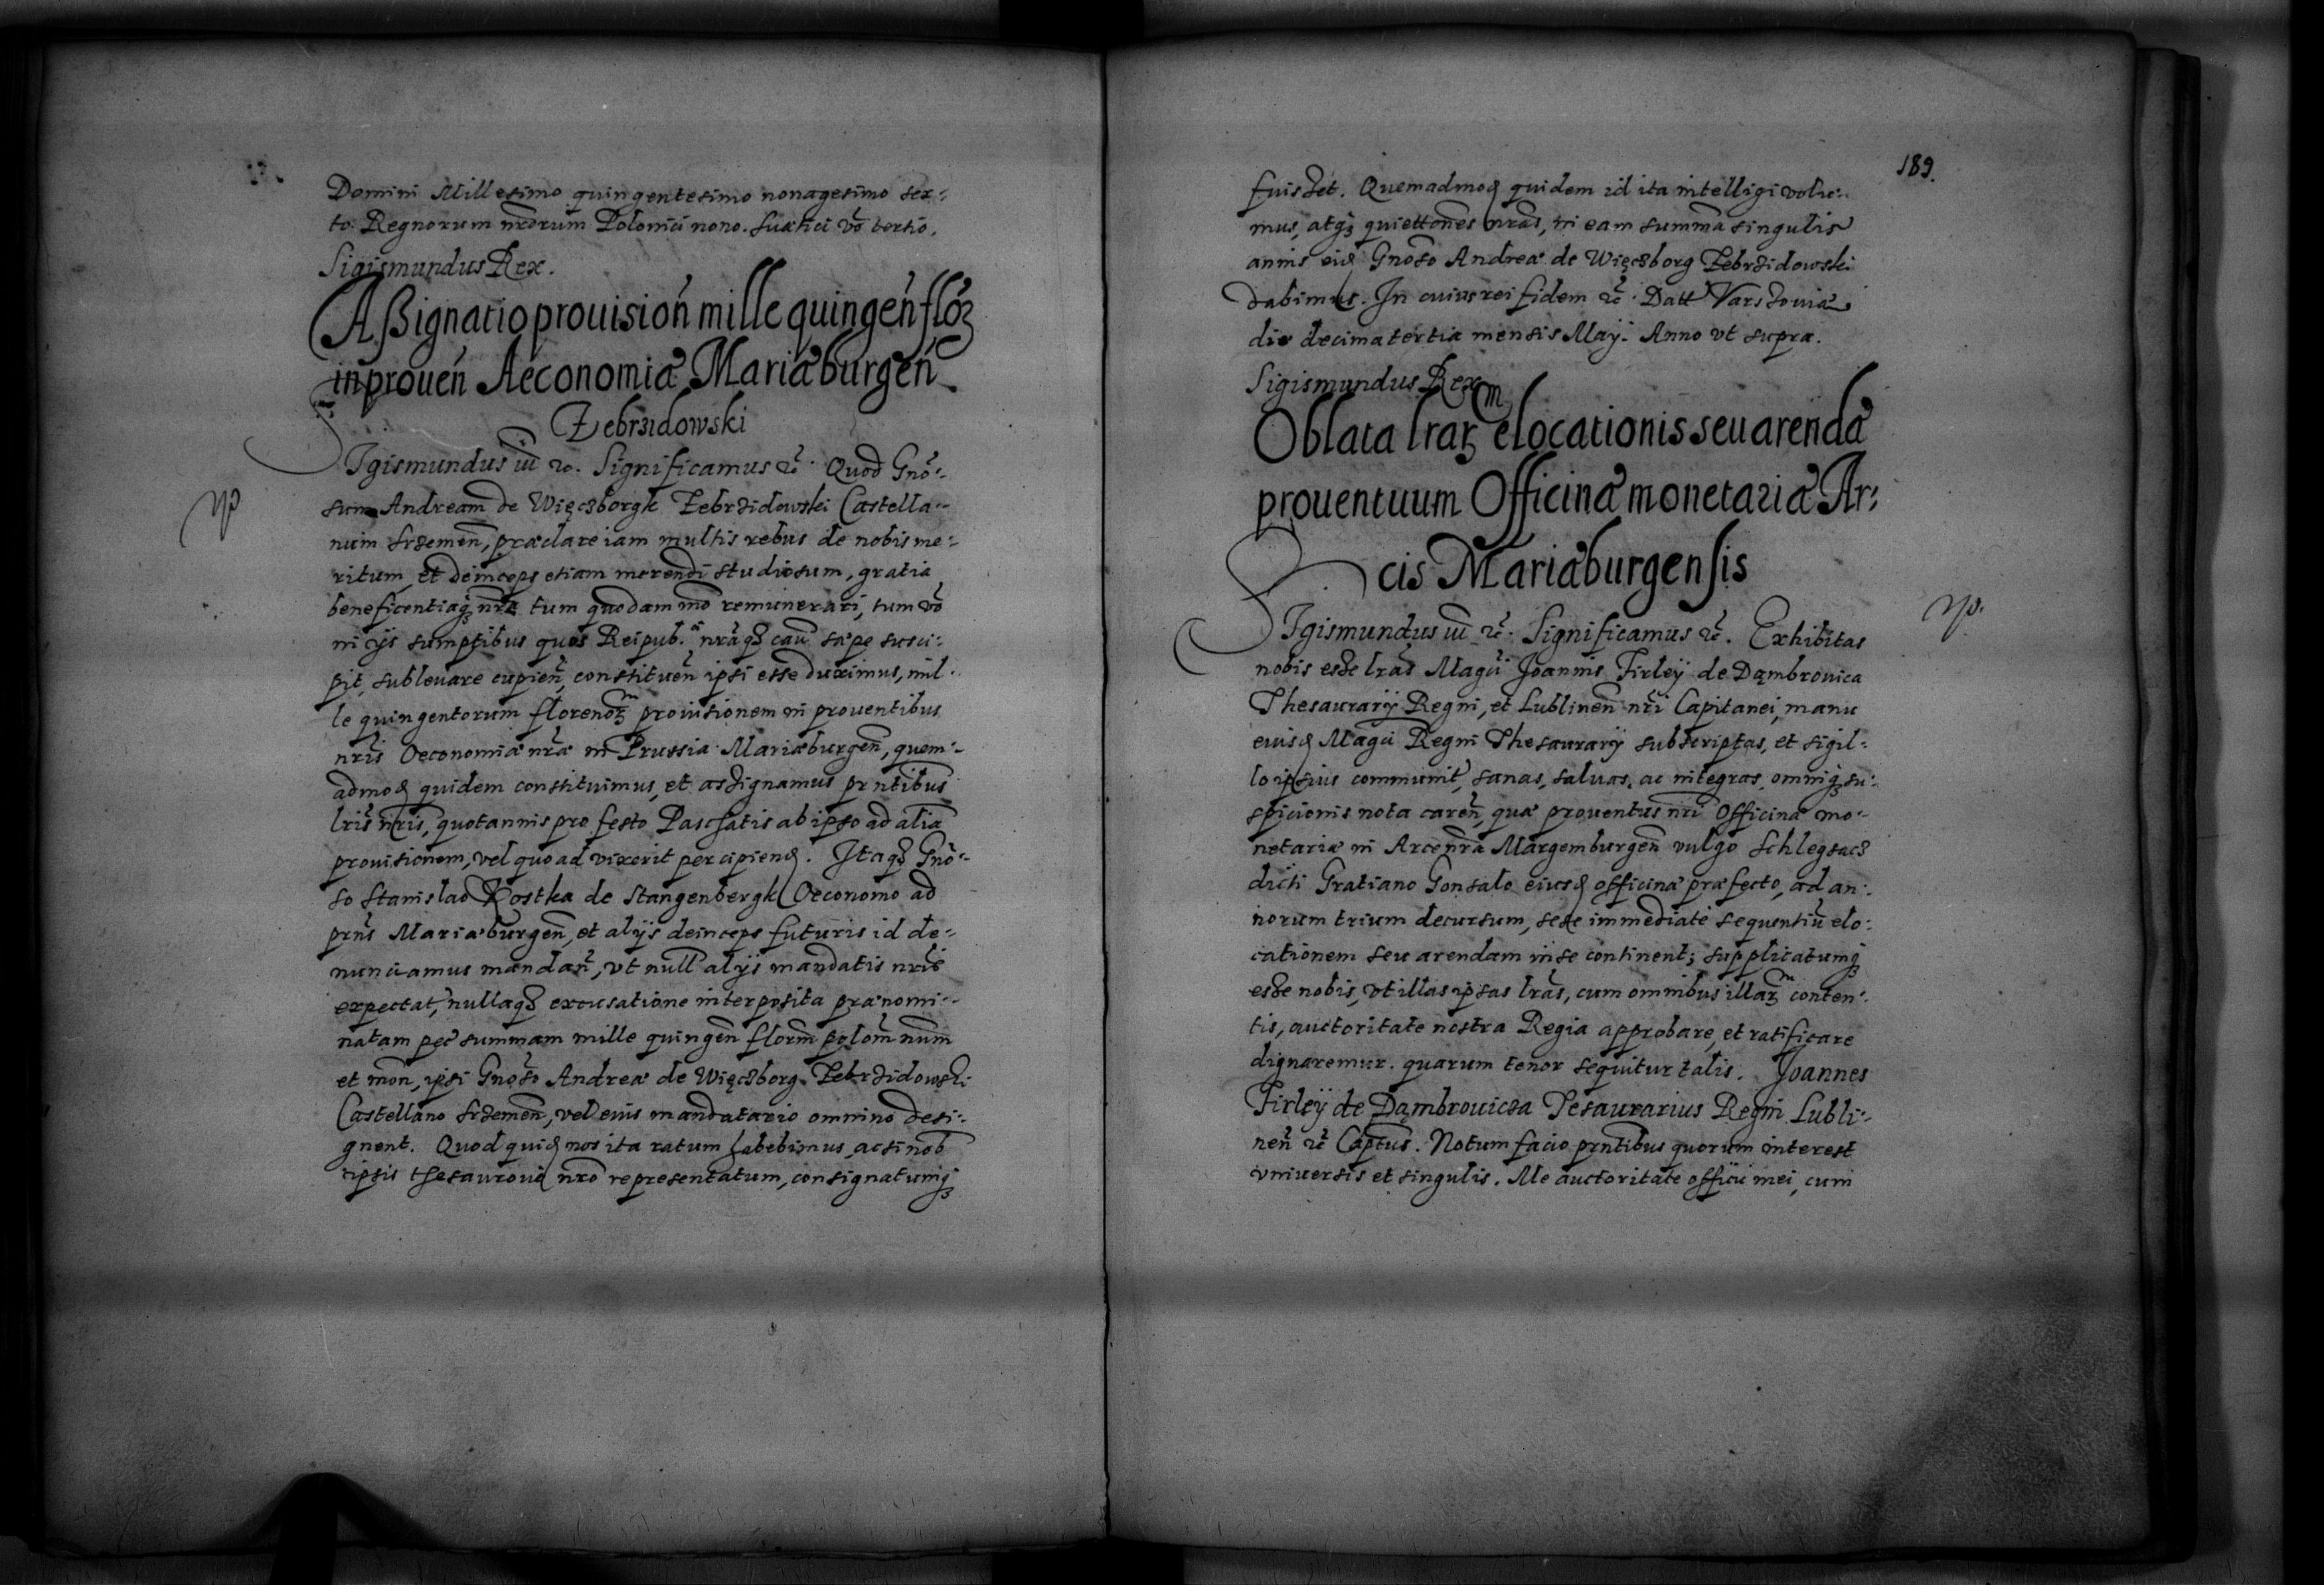 Domini Millesimo quingentesimo nonagesimo sex-
to. Regnorum nrorum Poloniæ nono. Suætiæ vo tertio.
Sigismundus Rex.
Aßignatio prouision mille quingen floꝝ
in prouen Aeconomiæ Mariæburgen
Zebrzidowski
Sigismundus iii ꝛc. Significamus ꝛc. Quod Gno-
sum Andream de Więczborgk Zebrzidowski Castella-
num Srzemen, præclare iam multis rebus de nobis me-
ritum, et deinceps etiam merendi studiosum, gratia
beneficentiaqꝫ nra tum quodam mo remunerari, tum vo
in ijs sumptibus quos Reipub. nraqꝫ cau sæpe susci-
pit, subleuare cupien, constituen ipsi esse duximus, mil-
le quingentorum florenoꝝ prouisionem in prouentibus
nris Oeconomiæ nræ in Prussia Mariæburgen, quem-
admoꝺ quidem constituimus, et assignamus prntibus
lris nris, quotannis pro festo Paschatis ab ipso ad alia
prouisionem, vel quoad vixerit percipienꝺ. Itaqꝫ Gno-
so Stanislao Kostka de Stangenbergk Oeconomo ad
prns Mariæburgen, et alijs deinceps futuris id de-
nunciamus mandan, vt null alijs mandatis nris
expectat, nullaqꝫ excusatione interposita prænomi-
natam pec summam mille quingen florm polom num
et mon, ipsi Gnoso Andreæ de Więczborg Zebrzidowski
Castellano Srzemen, vel eius mandatario omnino desi-
gnent. Quod quiꝺ nos ita ratum habebimus, ac si nob
ipsis thesauroue nro representatum, consignatumqꝫ
189.
fuisset. Quemadmoꝺ quidem id ita intelligi volu-
mus, atqꝫ quiettones nras, in eam summa singulis
annis eiꝺ Gnoso Andreæ de Więczborg Zebrzidowski
dabimus. In cuius rei fidem ꝛc. Datt Varssouiæ
die decima tertia mensis Maÿ. Anno vt supra.
Sigismundus Rex
Oblata lraꝝ elocationis seu arendæ
prouentuum Officinæ monetariæ Ar-
cis Mariæburgensis
Sigismundus iii ꝛc. Significamus ꝛc. Exhibitas
nobis esse lras Magci Joannis Firleÿ de Dąmbrouica
Thesaurarÿ Regni, et Lublinen nri Capitanei, manu
eiusꝺ Magci Regni Thesaurarÿ subscriptas, et sigil-
lo ipsius communit, sanas, saluas, ac integras, omniqꝫ su-
spicionis nota caren, quæ prouentus nri Officinæ mo-
netariæ in Arce nra Margemburgen vulgo Schlegsacz
dicti Gratiano Gonsalo eiusꝺ officinæ præfecto, ad an-
norum trium decursum, sese immediate sequentiu elo-
cationem seu arendam in se continent; supplicatumqꝫ
esse nobis, vt illas ipsas lras, cum omnibus illaꝝ conten-
tis, auctoritate nostra Regia approbare, et ratificare
dignaremur. quarum tenor sequitur talis. Joannes
Firleÿ de Dąmbrouicza Tesaurarius Regni Lubli-
nen ꝛc Captus. Notum facio prntibus quorum interest
vniuersis et singulis. Me auctoritate officii mei, cum